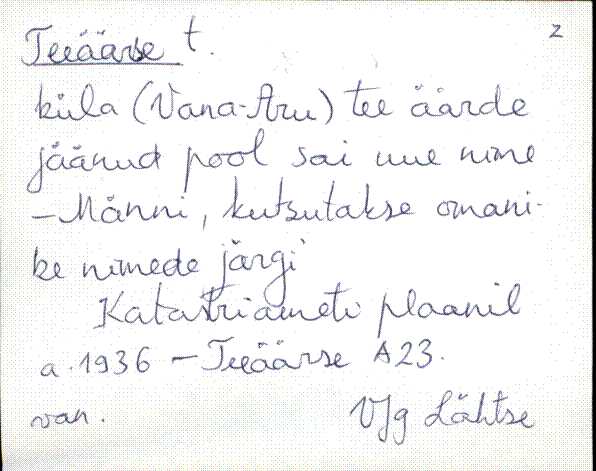 Teeäärse t. 2
küla (Vana-Aru) tee äärde
jäänud pool sai uue nime
– Männi, kutsutakse omani-
ke nimede järgi
Katastriameti plaanil
a. 1936 – Teeäärse A23.
van. VJg Lähtse